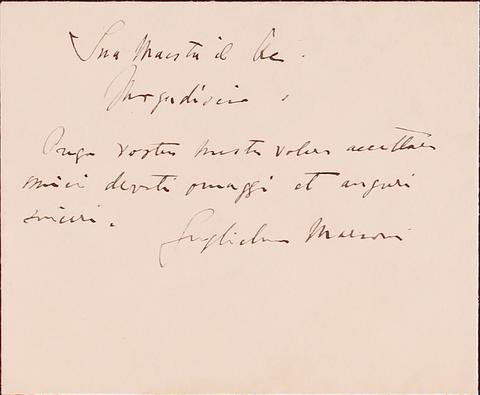 Sua Maestà il Re.
Mogadiscio.
Prego Vostra Maestà voler accettare
miei devoti omaggi et auguri
sinceri.
Guglielmo Marconi